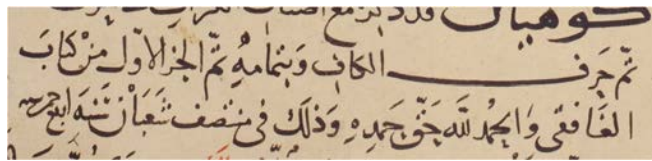 كوهيان
تم حرف الكاف وبتمامه تم الجز الاول من كتاب
الغافقى والحمد لله حق حمده وذلك فى منتصف شعبان سنة